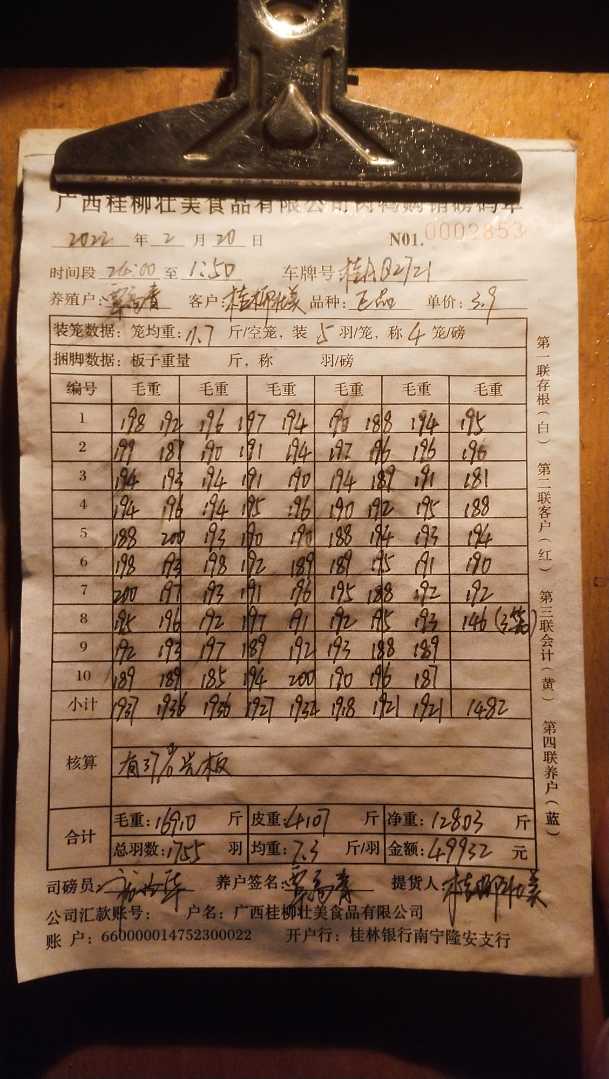 广西桂柳壮美食品有限公司肉鸭购销磅码单
2022 年 2 月 20 日 N01. 0002853
时间段 至 1:50 车牌号
养殖户: 客户: 桂柳壮美 品种: 正品 单价: 3.9
装笼数据: 笼均重: 11.7 斤/空笼, 装 5 羽/笼, 称 4 笼/磅
捆脚数据: 板子重量 斤, 称 羽/磅
编号 毛重 毛重 毛重 毛重 毛重
1 198 192 196 197 194 190 188 194 195
2 199 187 190 191 194 197 196 196 196
3 194 193 194 191 190 194 189 191 181
4 194 196 194 195 196 190 192 195 188
5 188 200 193 190 190 188 194 193 194
6 198 193 198 192 189 189 195 191 190
7 200 197 193 191 196 195 188 192 192
8 195 196 192 197 191 192 195 193 146 (3笼)
9 192 193 197 189 192 193 188 189
10 189 189 185 194 200 190 196 187
小计 1937 1936 1936 1927 1932 1918 1921 1921 1482
核算 有37
合计 毛重: 16910 斤 皮重: 4107 斤 净重: 12803 斤
总羽数: 1755 羽 均重: 7.3 斤/羽 金额: 49932 元
司磅员: 养户签名: 提货人: 桂柳壮美
公司汇款账号: 户名: 广西桂柳壮美食品有限公司
账 户: 660000014752300022 开户行: 桂林银行南宁隆安支行
第一联存根(白) 第二联客户(红) 第三联会计(黄) 第四联养户(蓝)